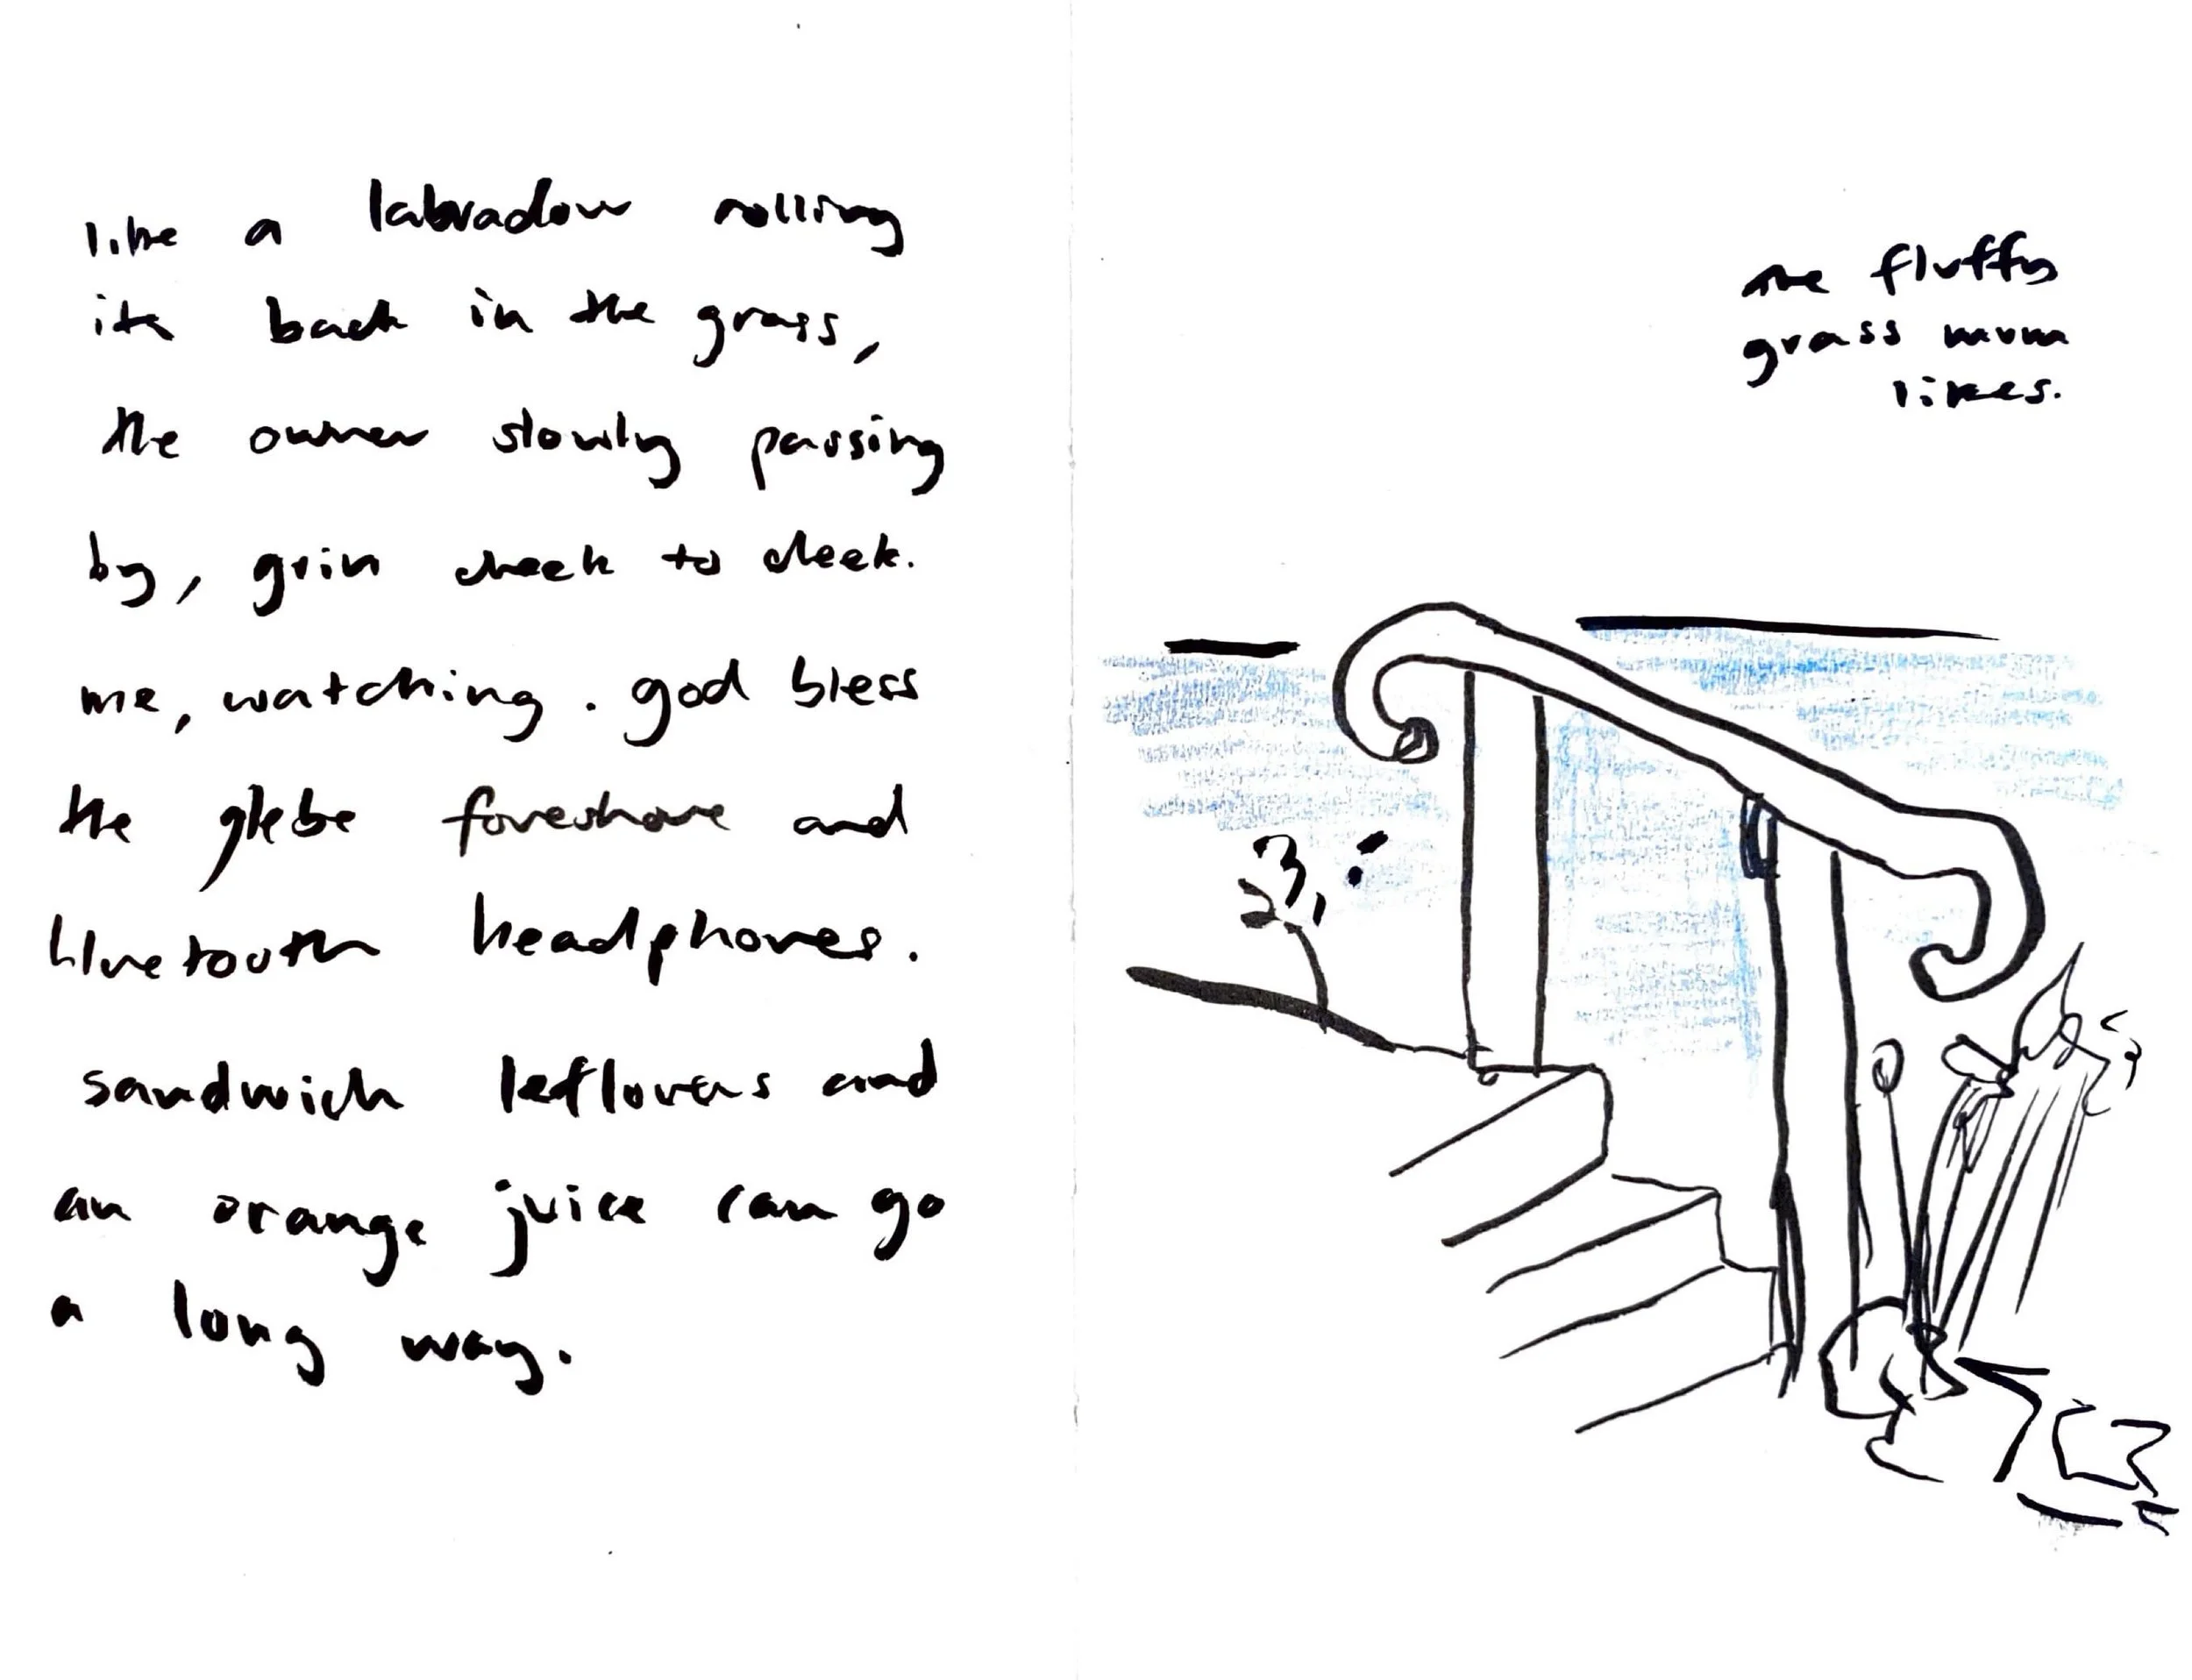 like a labradour rolling
its back in the grass,
the owner slowly passing
by, grin cheek to cheek.
me, watching. god bless
the glebe foreshore and
bluetooth headphones.
sandwich leftovers and
an orange juice can go
a long way.
the fluffy
grass mum
likes.